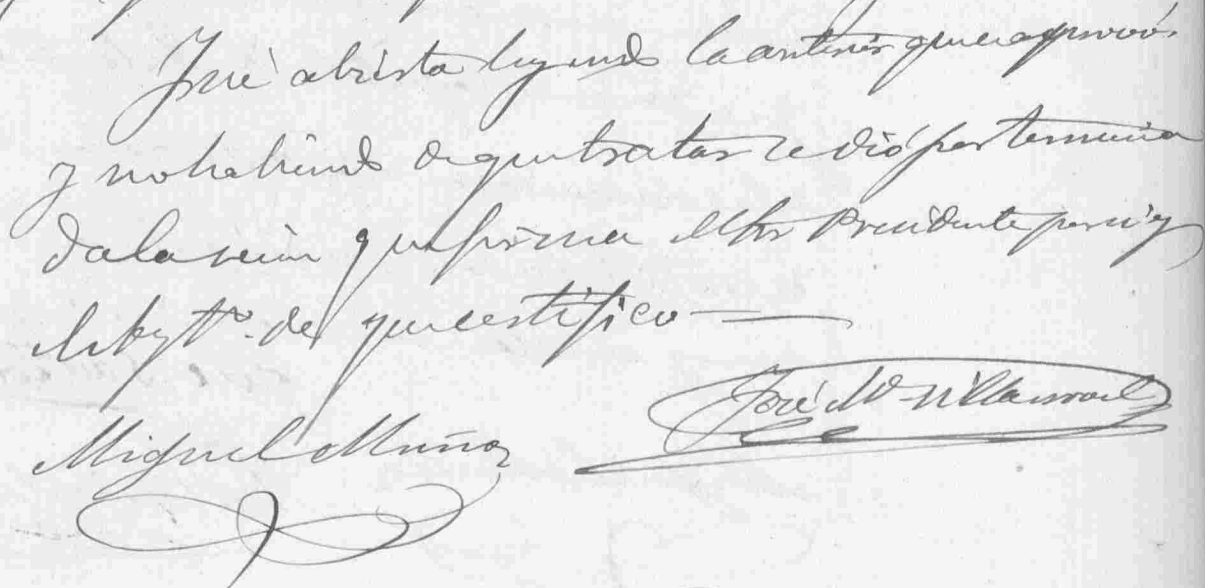 Fué abierta leyendo la anterior que se aprovó.
y no habiendo de que tratar se dió por termina
da la sesión que firma el Sor Presidente por si y
el Ayto. de que certifico
José Mª Villarroel
Miguel Muñoz